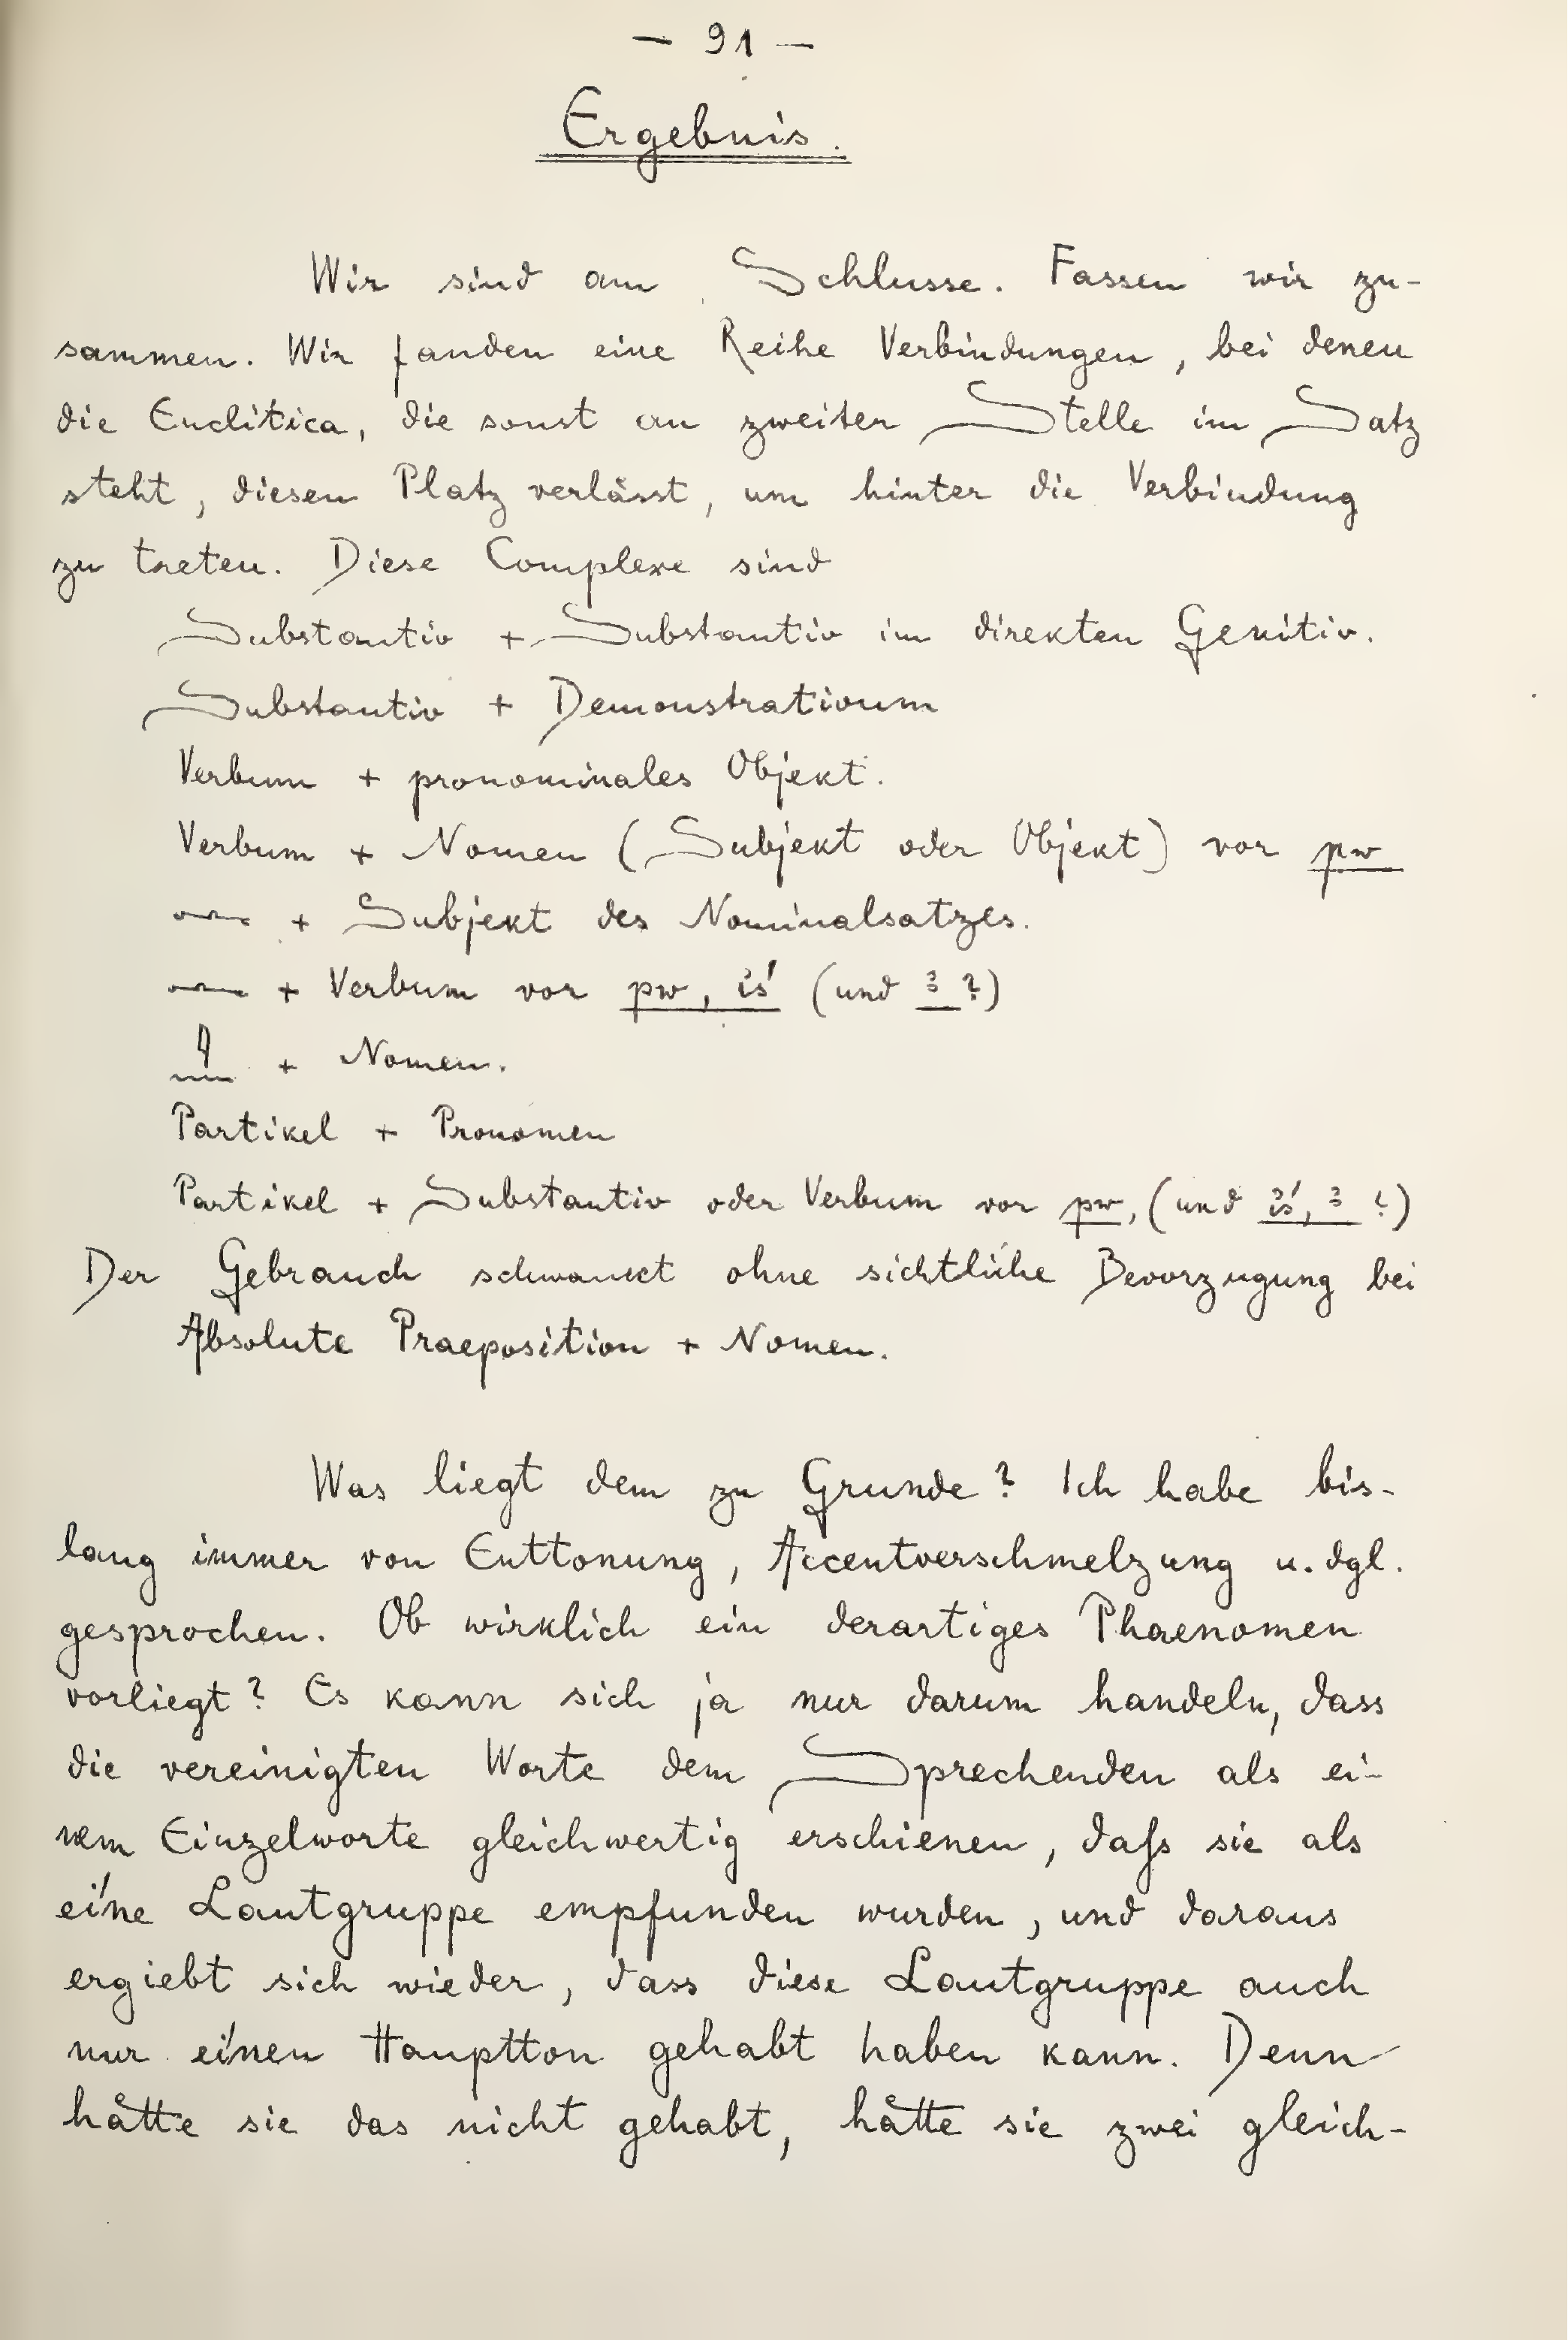 — 91 —
Ergebnis.
Wir sind am Schlusse. Fassen wir zu-
sammen. Wir fanden eine Reihe Verbindungen, bei denen
die Enclitica, die sonst an zweiter Stelle im Satz
steht, diesen Platz verlässt, um hinter die Verbindung
zu treten. Diese Complexe sind
Substantiv + Substantiv im direkten Genitiv.
Substantiv + Demonstrativum
Verbum + pronominales Objekt.
Verbum + Nomen (Subjekt oder Objekt) vor pw
𓂜 + Subjekt des Nominalsatzes.
𓂜 + Verbum vor pw, is̓ (und ꜣ ?)
𓇋𓈖 + Nomen.
Partikel + Pronomen
Partikel + Substantiv oder Verbum vor pw, (und ꞽś, ꜣ ?)
Der Gebrauch schwankt ohne sichtliche Bevorzugung bei
Absolute Praeposition + Nomen.
Was liegt dem zu Grunde? Ich habe bis-
lang immer von Enttonung, Accentverschmelzung u. dgl.
gesprochen. Ob wirklich ein derartiges Phaenomen
vorliegt? Es kann sich ja nur darum handeln, dass
die vereinigten Worte dem Sprechenden als ei-
nem Einzelworte gleichwertig erschienen, daſs sie als
eíne Lautgruppe empfunden wurden, und daraus
ergiebt sich wieder, dass diese Lautgruppe auch
nur eínen Hauptton gehabt haben kann. Denn
hätte sie das nicht gehabt, hätte sie zwei gleich-